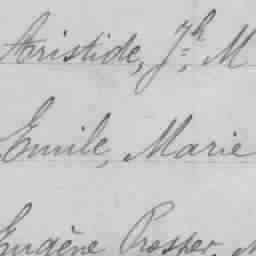 Aristide, Jh, M
Emile, Marie
Eugène Prosper,